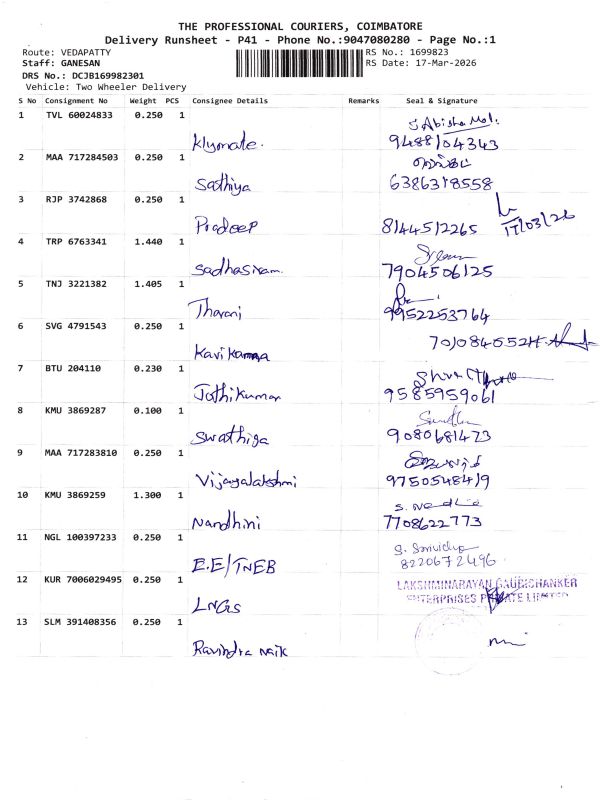 THE PROFESSIONAL COURIERS, COIMBATORE
Delivery Runsheet - P41 - Phone No.:9047080280 - Page No.:1
Route: VEDAPATTY
RS No.: 1699823
Staff: GANESAN
RS Date: 17-Mar-2026
DRS No.: DCJB169982301
Vehicle: Two Wheeler Delivery
S No Consignment No Weight PCS Consignee Details Remarks Seal & Signature
1 TVL 60024833 0.250 1
Klymate. 9488104343
2 MAA 717284503 0.250 1
Sathiya 6386318558
3 RJP 3742868 0.250 1
Pradeep 8144512265 17/03/26
4 TRP 6763341 1.440 1
Sadhasivam. 7904506125
5 TNJ 3221382 1.405 1
Tharani 9952253764
6 SVG 4791543 0.250 1
7 BTU 204110 0.230 1
Jothikumar 9585959061
8 KMU 3869287 0.100 1
Swathiga 9080681473
9 MAA 717283810 0.250 1
Vijayalakshmi 9750548419
10 KMU 3869259 1.300 1 S. Nandhini
Nandhini 7708622773
11 NGL 100397233 0.250 1
E.E/TNEB 8220672496
12 KUR 7006029495 0.250 1 LAKSHMINARAYAN GAURISHANKER
ENTERPRISES PRIVATE LIMITED
LNGS
13 SLM 391408356 0.250 1
Ravindra Naik